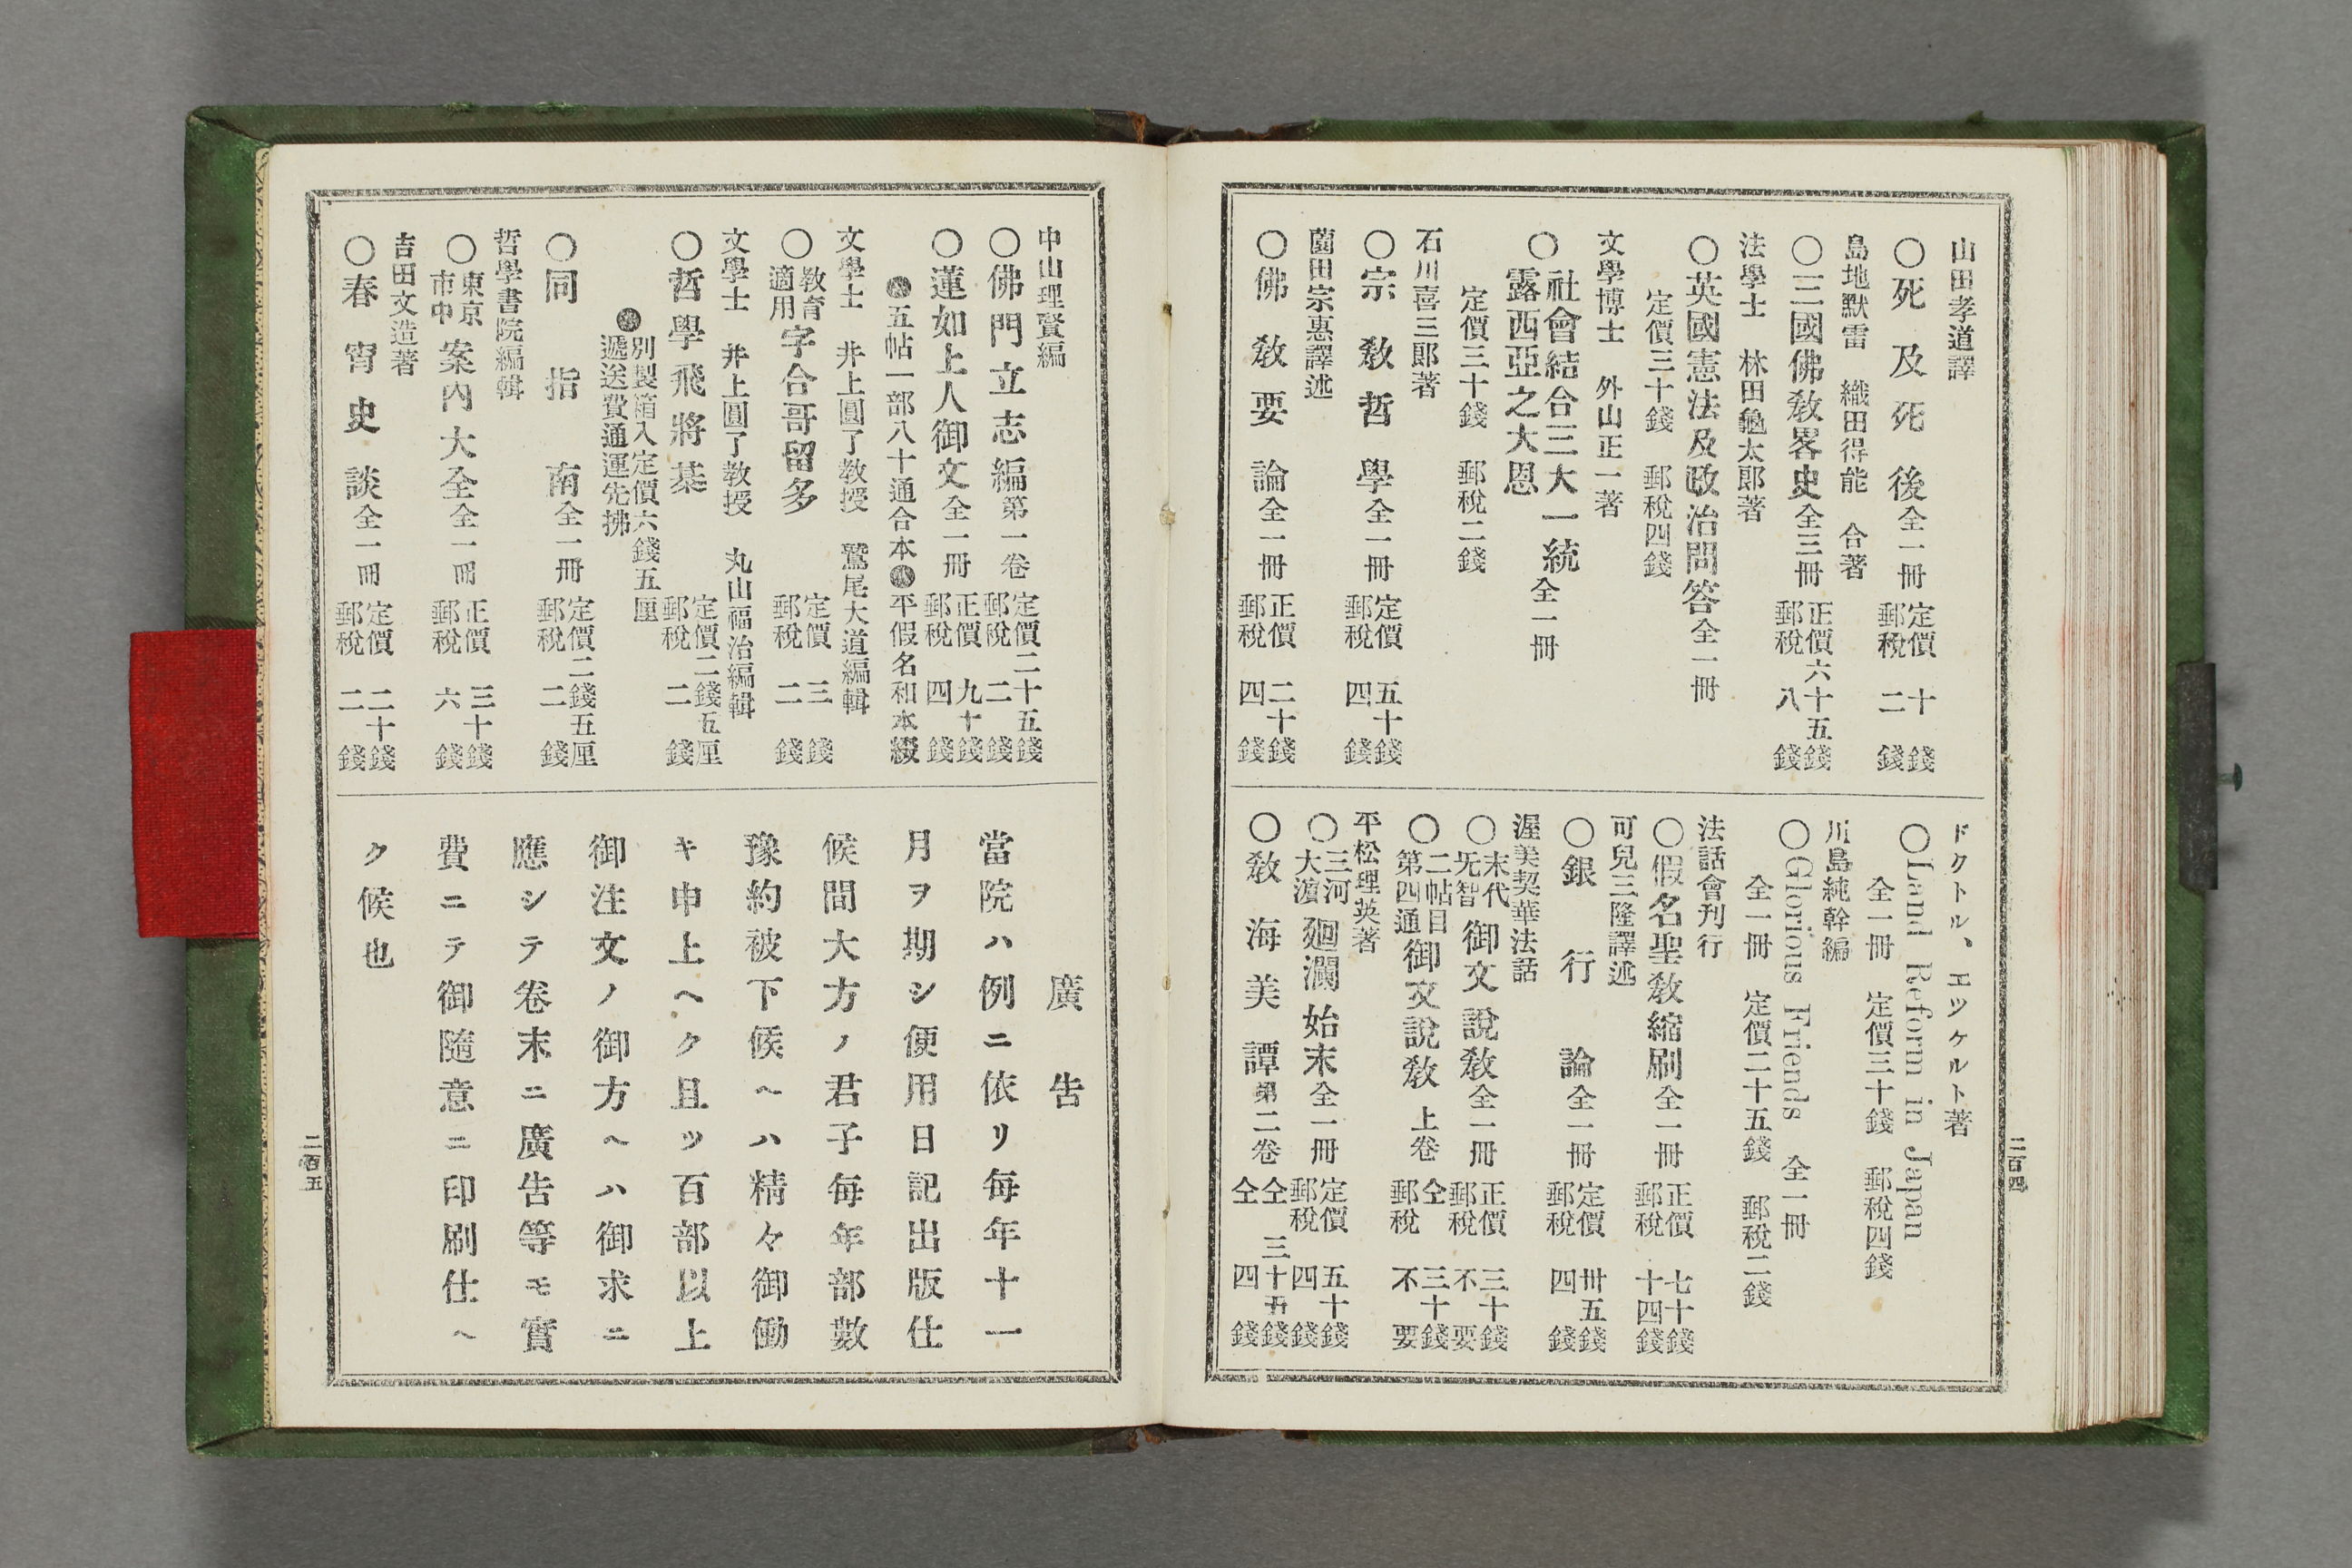 山田孝道譯
〇死及死後全一冊 定價十錢 郵税二錢
島地默雷 織田得能 合著
〇三國佛敎畧史全三冊 正價六十五錢 郵税八錢
法學士 林田龜太郎著
〇英國憲法及政治問答全一冊
定價三十錢 郵税四錢
文學博士 外山正一著
〇社會結合三大一統
露西亞之大恩 全一冊
定價三十錢 郵税二錢
石川喜三郎著
〇宗敎哲學全一冊 定價五十錢 郵税四錢
薗田宗惠譯述
〇佛敎要論全一冊 正價二十錢 郵税四錢
ドクトル、エツケルト著
〇Land Reform in Japan
全一冊 定價三十錢 郵税四錢
川島純幹編
〇Glorious Friends 全一冊
全一冊 定價二十五錢 郵税二錢
法話會刊行
〇假名聖敎縮刷全一冊 正價七十錢 郵税十四錢
可兒三隆譯述
〇銀行論全一冊 定價卅五錢 郵税四錢
渥美契華法話
〇末代旡智 御文說敎全一冊 正價三十錢 郵税不要
〇二帖目第四通 御文說敎 上卷 仝三十錢 郵税不要
平松理英著
〇三河大濵 廻瀾始末全一冊 定價五十錢 郵税四錢
〇敎海美譚第二卷 仝三十五錢 仝四錢
二百四
中山理賢編
〇佛門立志編第一卷 定價二十五錢 郵税二錢
〇蓮如上人御文全一冊 正價九十錢 郵税四錢
五帖一部八十通合本 平假名和本綴
文學士 井上圓了敎授 鷲尾大道編輯
〇敎育適用 字合哥留多 定價三錢 郵税二錢
文學士 井上圓了敎授 丸山福治編輯
〇哲學飛將棊 定價二錢五厘 郵税二錢
別製箱入定價六錢五厘
遞送費通運先拂
〇同指南全一冊 定價二錢五厘 郵税二錢
哲學書院編輯
〇東京市中 案內大全全一冊 正價三十錢 郵税六錢
吉田文造著
〇春宵史談全一冊 定價二十錢 郵税二錢
廣告
當院ハ例ニ依リ每年十一
月ヲ期シ便用日記出版仕
候間大方ノ君子每年部數
豫約被下候ヘハ精々御働
キ申上ヘク且ツ百部以上
御注文ノ御方ヘハ御求ニ
應シテ卷末ニ廣告等モ實
費ニテ御隨意ニ印刷仕ヘ
ク候也
二百五